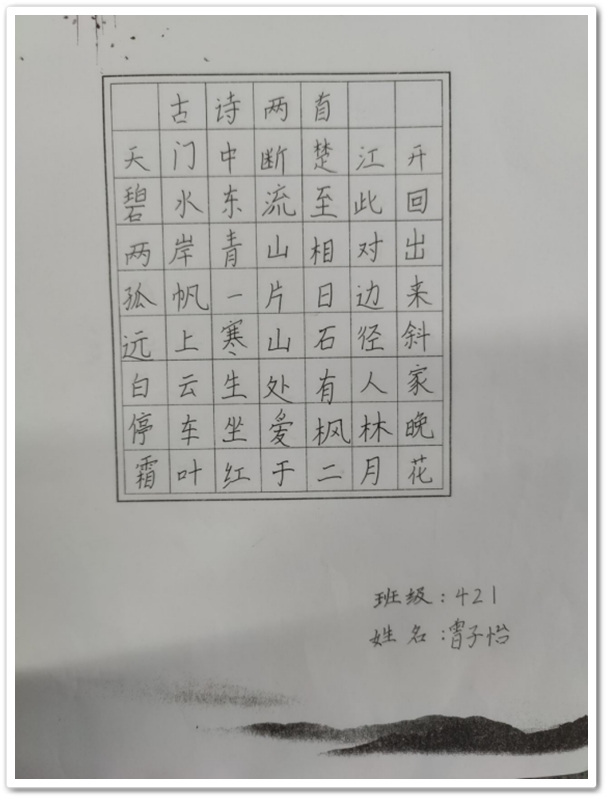 古诗两首
天门中断楚江开
碧水东流至此回
两岸青山相对出
孤帆一片日边来
远上寒山石径斜
白云生处有人家
停车坐爱枫林晚
霜叶红于二月花
班级：421
姓名：霄子怡